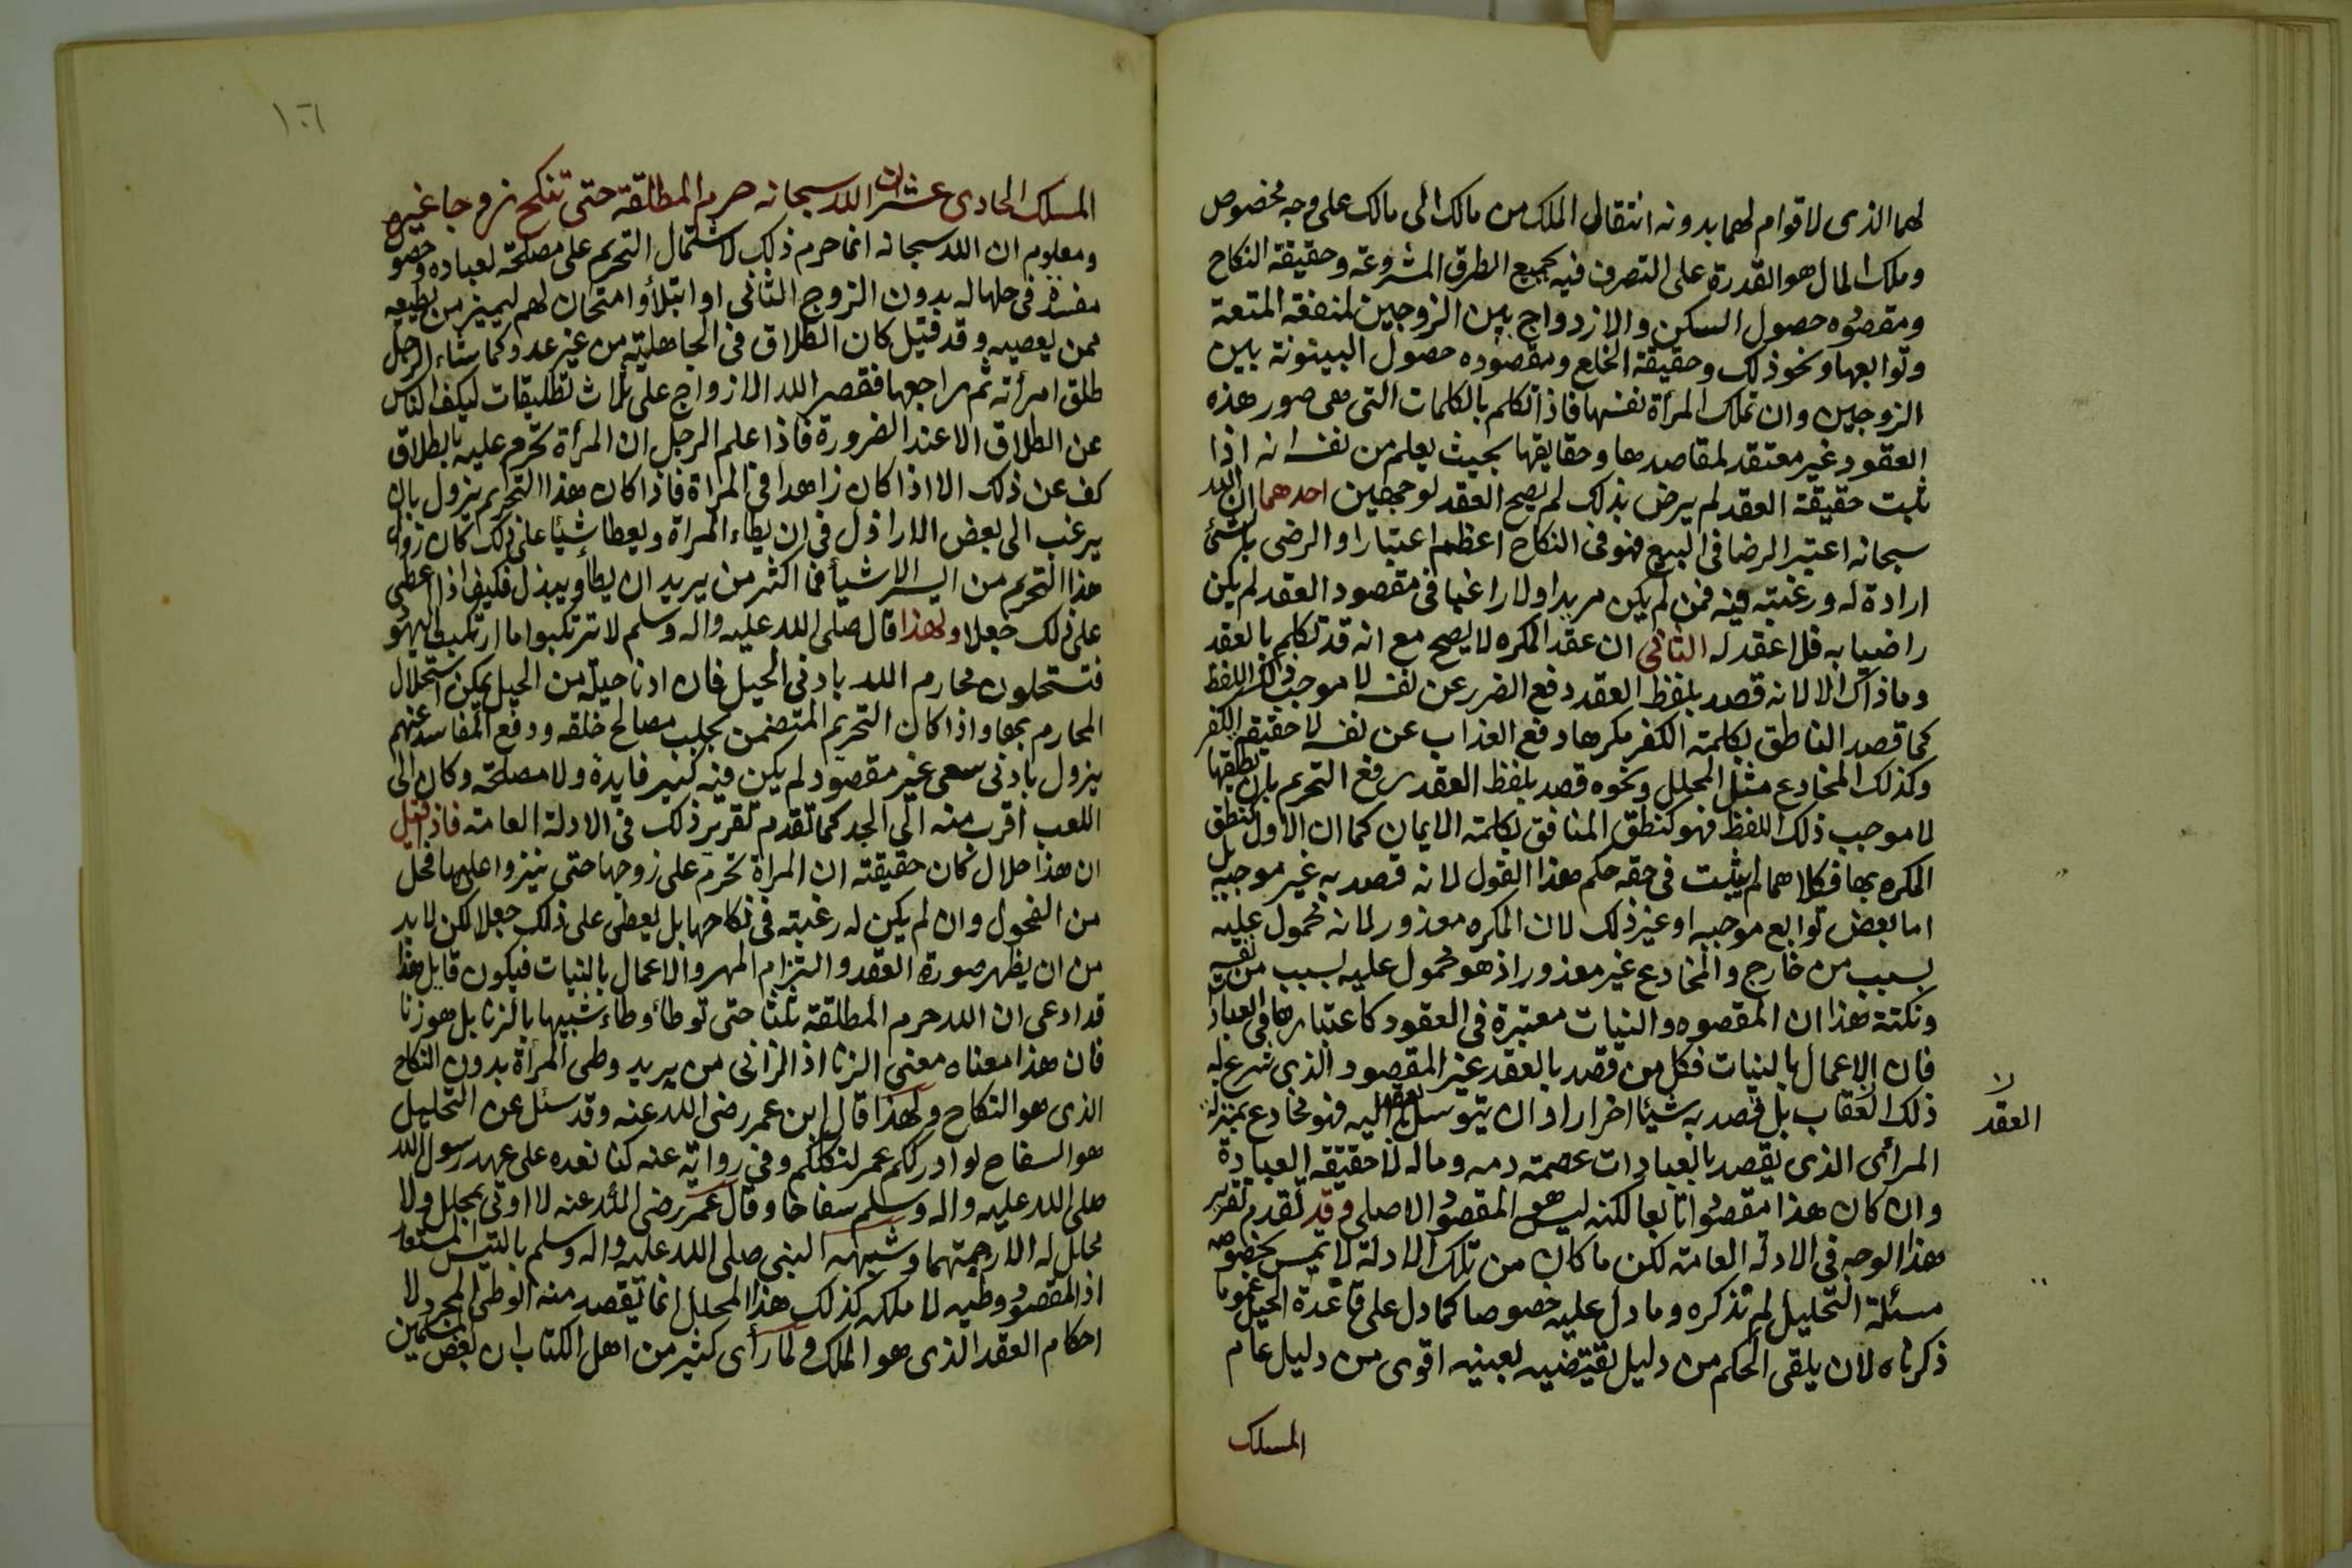 لهما الذى لا قوام لهما بدونه انتقال الملك من مالك الى مالك على وجه مخصوص
وملك المال هو القدرة على التصرف فيه بجميع الطرق المشروعة وحقيقة النكاح
ومقصوده حصول السكن والازدواج بين الزوجين لمنفعة المتعة
وتوابعها ونحو ذلك وحقيقة الخلع ومقصوده حصول البينونة بين
الزوجين وان تملك المرأة نفسها فاذا تكلم بالكلمات التى هى صور هذه
العقود غير معتقد لمقاصدها وحقايقها بحيث يعلم من نفسه انه اذا
ثبت حقيقة العقد لم يرض بذلك لم يصح العقد لوجهين احدهما ان الله
سبحانه اعتبر الرضا فى البيع فهو فى النكاح اعظم اعتبارا والرضى بالشئ
ارادة له ورغبته فيه فمن لم يكن مريدا ولا راغبا فى مقصود العقد لم يكن
راضيا به فلا عقد له الثانى ان عقد المكره لا يصح مع انه قد تكلم بالعقد
وما ذاك الا لانه قصد بلفظ العقد دفع الضرر عن نفسه لا موجب ذلك اللفظ
كما قصد الناطق بكلمة الكفر مكرها دفع العذاب عن نفسه لا حقيقة الكفر
وكذلك المخادع مثل المحلل ونحوه قصد بلفظ العقد رفع التحريم بان يطلقها
لا موجب ذلك اللفظ فهو كنطق المنافق بكلمة الايمان كما ان الاول كنطق
المكره بها فكلاهما لم يثبت فى حقه حكم هذا القول لانه قصد به غير موجبه بل
اما بعض توابع موجبه او غير ذلك لان المكره معذور لانه محمول عليه
بسبب من خارج والمخادع غير معذور اذ هو محمول عليه بسبب من نفسه
ونكتة هذا ان المقصود والنيات معتبرة فى العقود كاعتبارها فى العبادات
فان الاعمال بالنيات فكل من قصد بالعقد غير المقصود الذى شرع له
ذلك العقاب بل قصد به شيئا اخر اراد ان يتوسل بالعقد اليه فهو مخادع بمنزلة
لا
العقد
المرأى الذى يقصد بالعبادات عصمة دمه وماله لا حقيقة العبادة
وان كان هذا مقصودا تابعا لكنه ليس هو المقصود الاصلى وقد تقدم تقرير
هذا الوجه فى الادلة العامة لكن ما كان من تلك الادلة لا تمس بخصوص
مسئلة التحليل لم نذكره وما دل عليه خصوصا كما دل على قاعدة الحيل عموما
ذكرناه لان يلقى الحكم من دليل يقتضيه بعينه اقوى من دليل عام
المسلك
١٠٦
المسلك الحادى عشر ان الله سبحانه حرم المطلقة حتى تنكح زوجا غيره
ومعلوم ان الله سبحانه انما حرم ذلك لاشتمال التحريم على مصلحة لعباده وحصو
مفسدة فى حلها له بدون الزوج الثانى او ابتلأ وامتحان لهم ليميز من يطيعه
ممن يعصيه وقد قيل كان الطلاق فى الجاهلية من غير عدد وكما شاء الرجل
طلق امرأته ثم راجعها فقصر الله الازواج على ثلاث تطليقات ليكف الناس
عن الطلاق الا عند الضرورة فاذا علم الرجل ان المرأة تحرم عليه بالطلاق
كف عن ذلك الا اذا كان زاهدا فى المراة فاذا كان هذا التحريم يزول بان
يرغب الى بعض الاراذل فى ان يطاء المراة ويعطا شيئا على ذلك كان زوال
هذا التحريم من ايسر الاشيأ فما اكثر من يريد ان يطأ ويبذل فكيف اذا اعطى
على ذلك جعلا ولهذا قال صلى الله عليه واله وسلم لا ترتكبوا ما ارتكبت اليهود
فتستحلون محارم الله بادنى الحيل فان ادنا حيلة من الحيل يمكن استحلال
المحارم بها واذا كان التحريم المتضمن بجلب مصالح خلقه ودفع المفاسد عنهم
يزول بادنى سعى غير مقصود لم يكن فيه كبير فايدة ولا مصلحة وكان الى
اللعب اقرب منه الى الجد كما تقدم تقرير ذلك فى الادلة العامة فاذا قيل
ان هذا حلال كان حقيقته ان المراة تحرم على زوجها حتى ينزوا عليها فحل
من الفحول وان لم يكن له رغبته فى نكاحها بل يعطى على ذلك جعلا لكن لا بد
من ان يظهر صورة العقد والتزام المهر والاعمال بالنيات فيكون قايل هذا
قد ادعى ان الله حرم المطلقة ثلثا حتى توطأ وطاء شبيها بالزنا بل هو زنا
فان هذا معناه معنى الزنا اذ الزانى من يريد وطى المرأة بدون النكاح
الذى هو النكاح ولهذا قال ابن عمر رضى الله عنه وقد سئل عن التحليل
هو السفاح لو ادرككم عمر لنكلكم وفى رواية عنه كنا نعده على عهد رسول الله
صلى الله عليه واله وسلم سفاحا وقال عمر رضى الله عنه لا اوتى بمحلل ولا
محلل له الا رجمتهما وشبهه النبى صلى الله عليه واله وسلم بالتيس المستعار
اذ المقصود وطيه لا ملكه كذلك هذا المحلل انما تقصد منه الوطى المجرد لا
احكام العقد الذى هو الملك ولما رأى كثير من اهل الكتاب ان بعض المسلمين